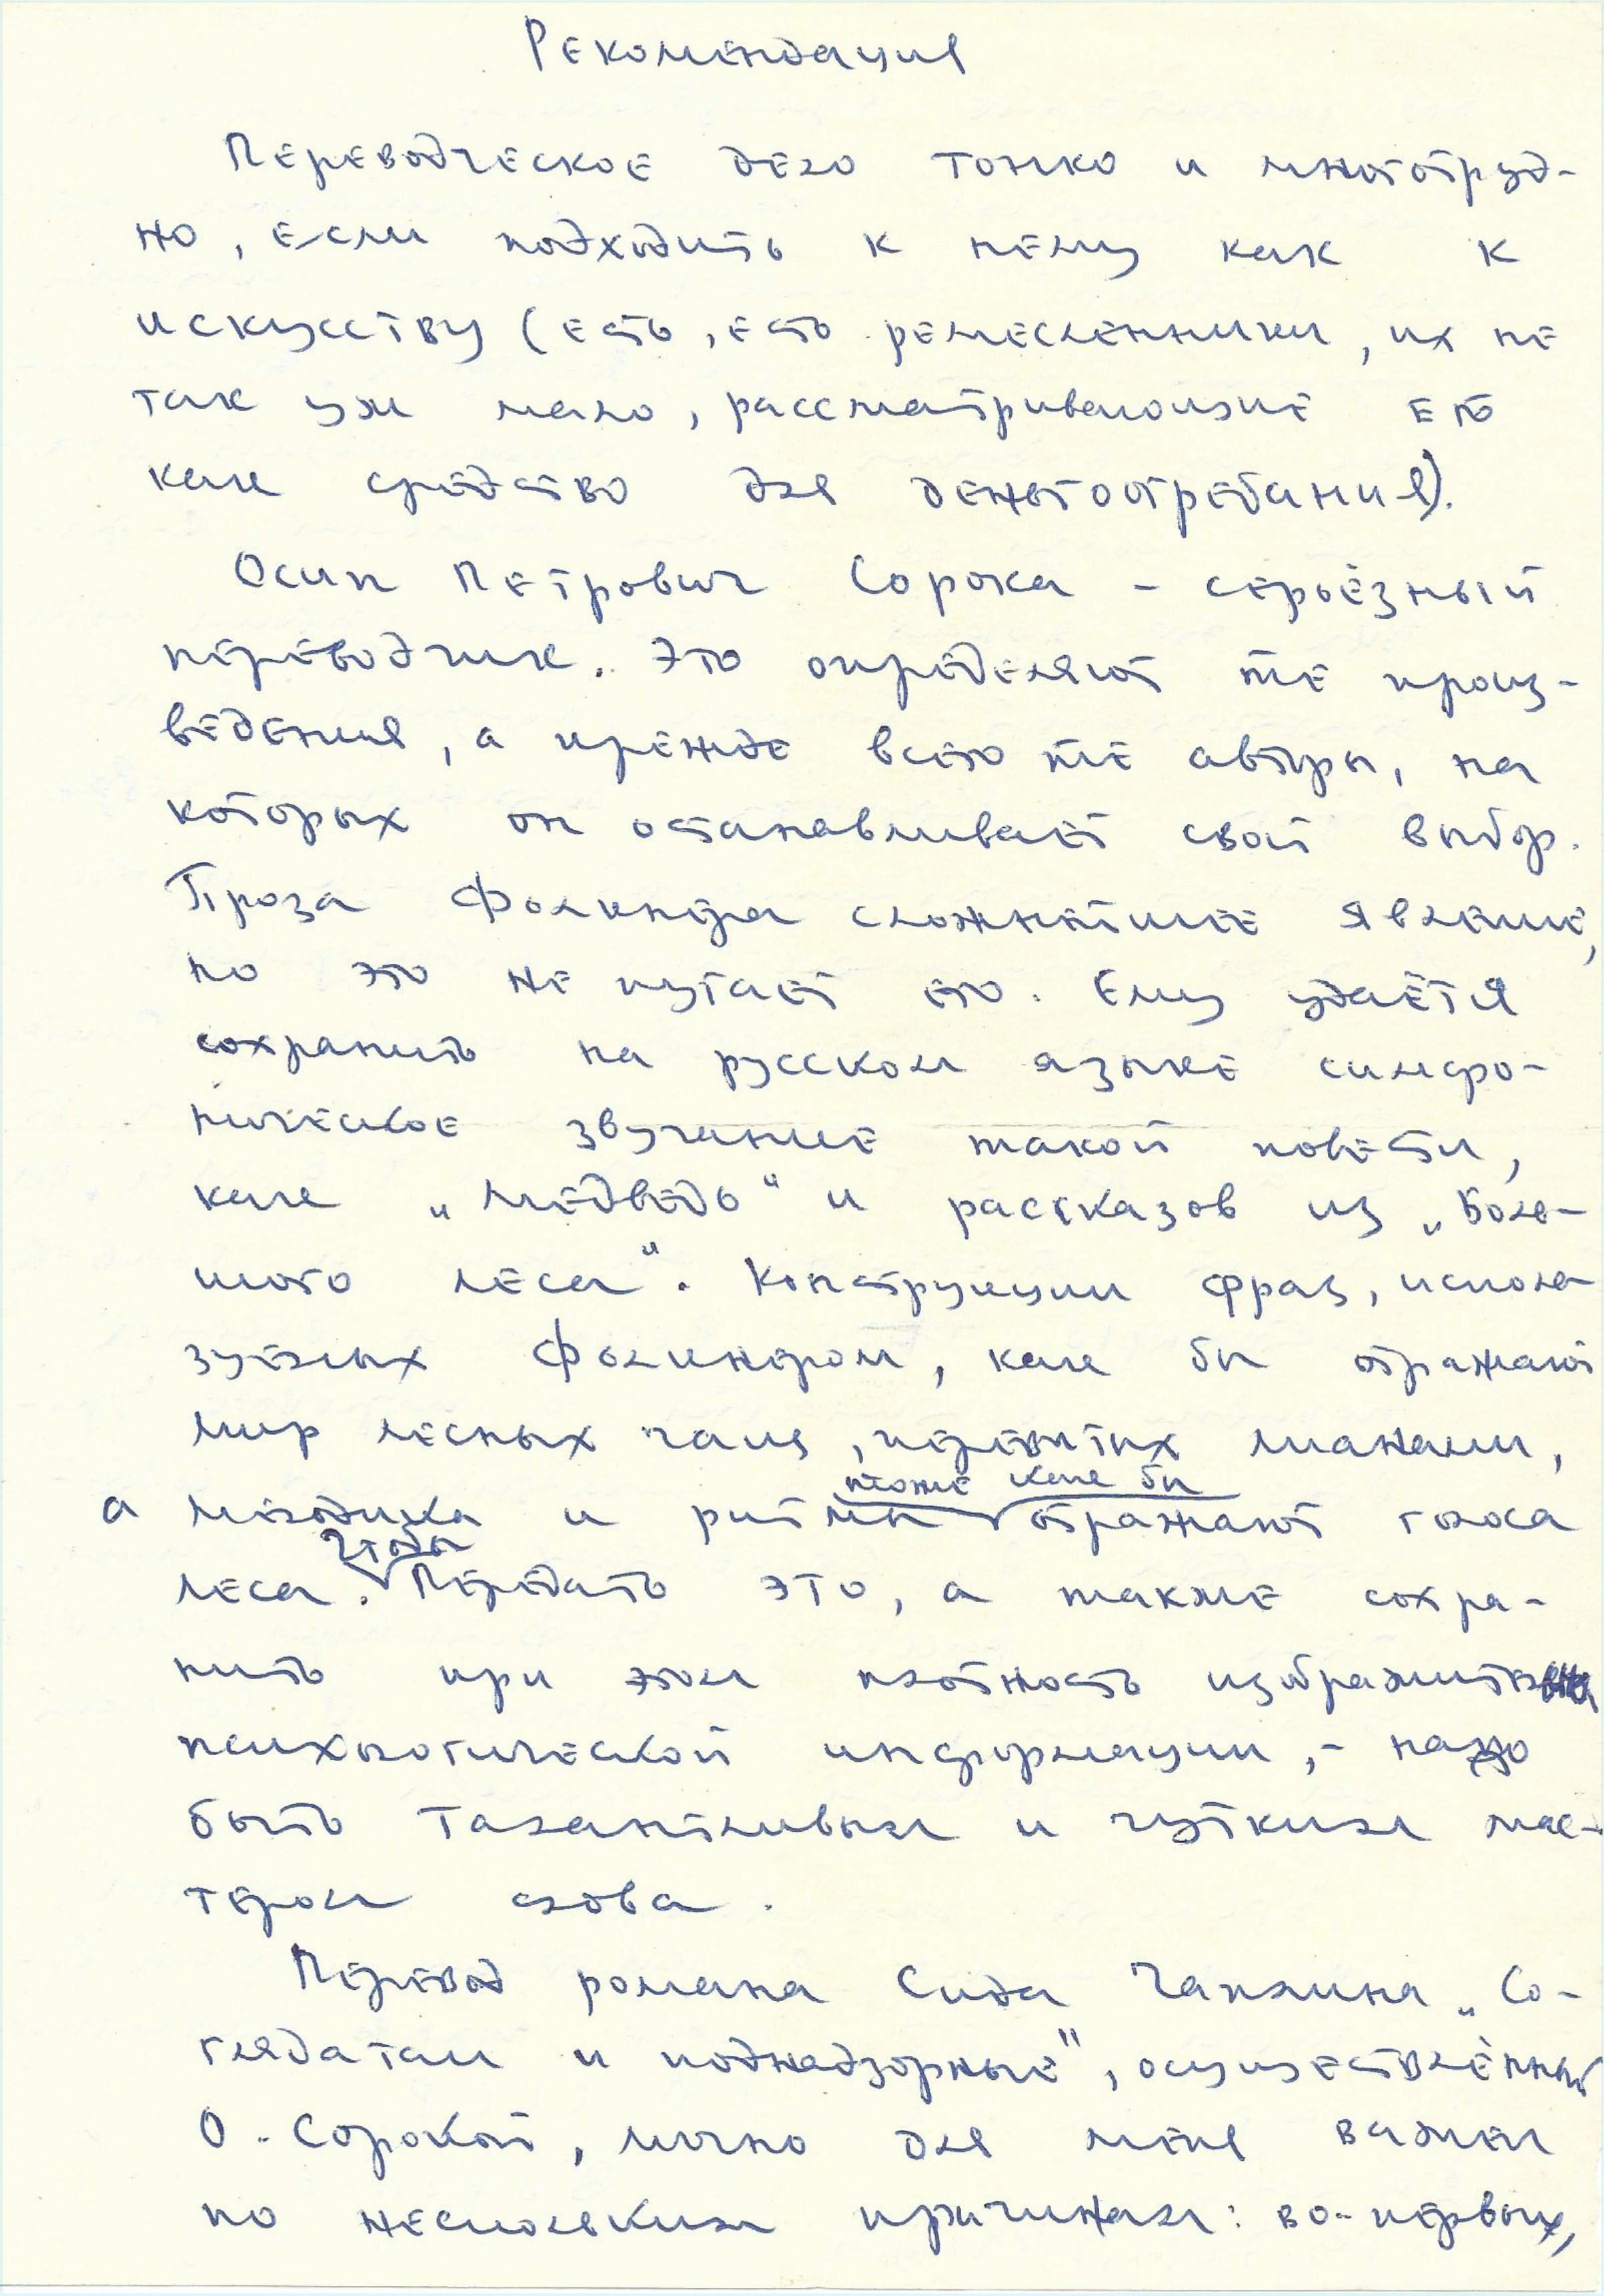 Рекомендация
Переводческое дело тонко и многотруд-
но, если подходить к нему как к
искусству (есть, есть ремесленники, их не
так уж мало, рассматривающие его
как средство для деньгоогребания).
Осип Петрович Сорока – серьёзный
переводчик. Это определяют те произ-
ведения, а прежде всего те авторы, на
которых он останавливает свой выбор.
Проза Фолкнера сложнейшее явление,
но это не пугает его. Ему удаётся
сохранить на русском языке симфо-
ническое звучание такой повести,
как „Медведь“ и рассказов из „Боль-
шого леса“. Конструкции фраз, исполь-
зуемых Фолкнером, как бы отражают
мир лесных чащ, перевитых лианами,
тоже как бы
а мелодика и ритмы отражают голоса
Чтобы
леса. Передать это, а также сохра-
нить при этом плотность
психологической информации, – надо
быть талантливым и чутким мас-
тером слова.
Перевод романа Сида Чаплина „Со-
глядатаи и поднадзорные“, осуществлённый
О. Сорокой, лично для меня важен
по нескольким причинам: во-первых,